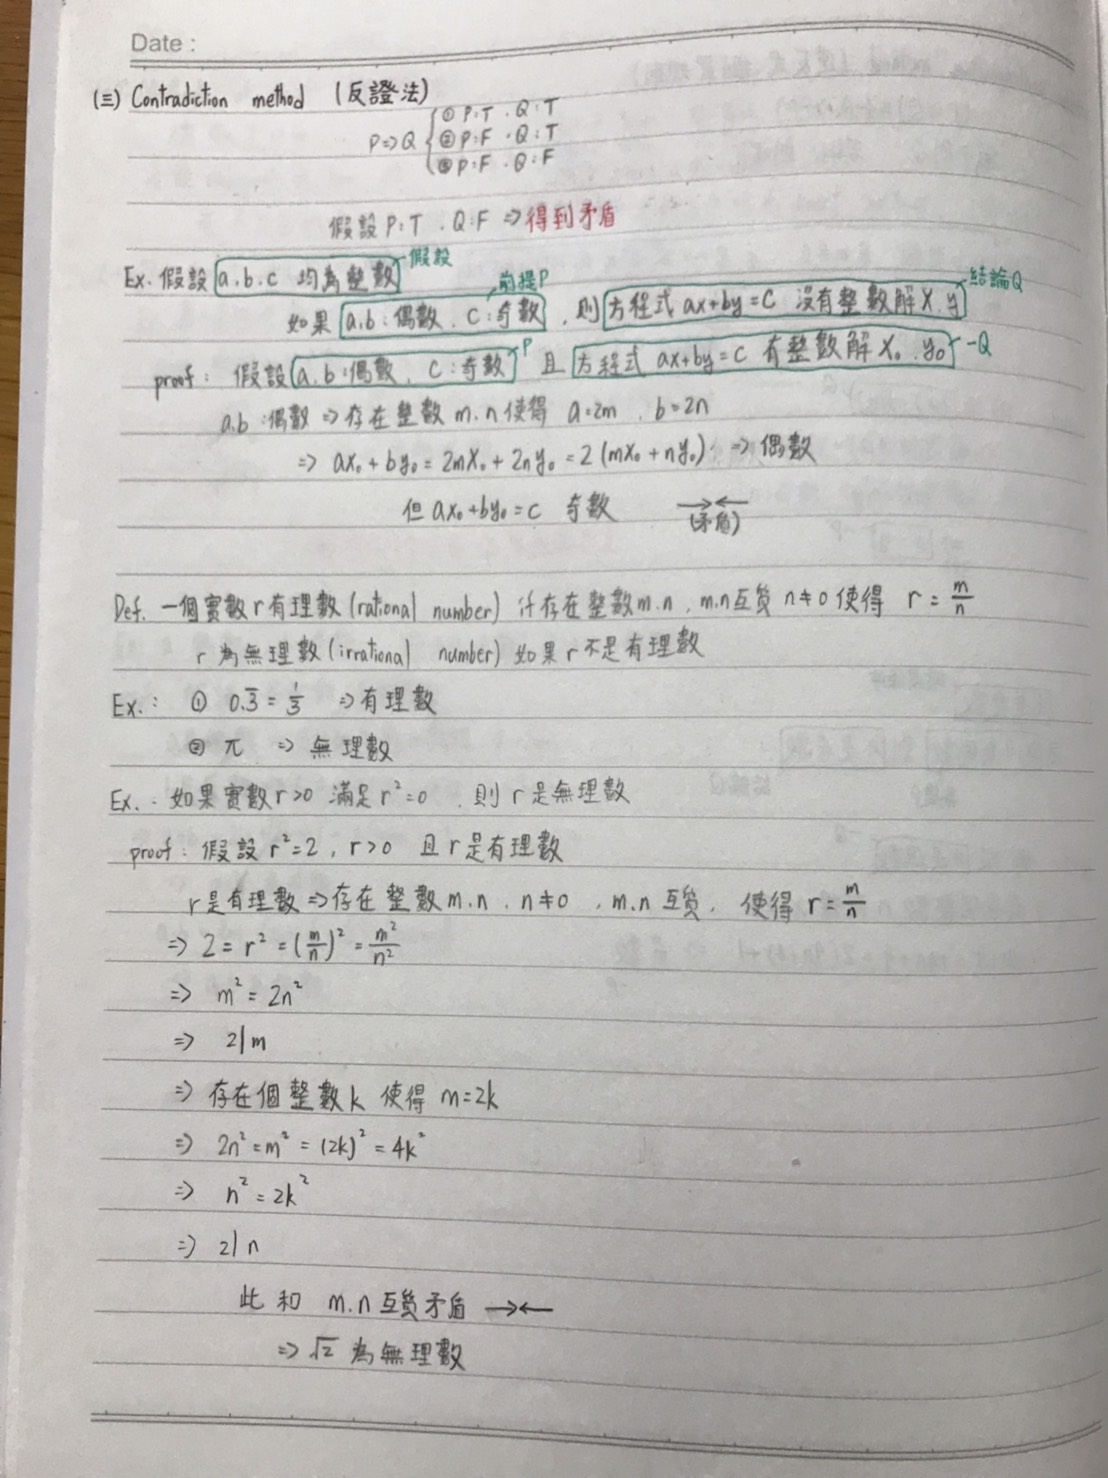 Date :
(三) Contradiction method (反證法)
① P:T . Q:T
P=>Q ② P:F . Q:T
③ P:F . Q:F
假設 P:T . Q:F => 得到矛盾
Ex. 假設 a.b.c 均為整數 假設
如果 a.b:偶數 . C:奇數 前提P , 則 方程式 ax+by=C 沒有整數解 X.y 結論Q
proof: 假設 a.b:偶數 . C:奇數 P 且 方程式 ax+by=c 有整數解 X₀.y₀ -Q
a.b:偶數 => 存在整數 m.n 使得 a=2m . b=2n
=> ax₀+by₀=2mX₀+2ny₀=2(mX₀+ny₀) => 偶數
但 ax₀+by₀=c 奇數 →← (矛盾)
Def. 一個實數 r 有理數 (rational number) 存在整數 m.n , m.n互質 n≠0 使得 r = m/n
r 為無理數 (irrational number) 如果 r 不是有理數
Ex.: ① 0.3̅ = 1/3 => 有理數
② π => 無理數
Ex.: 如果實數 r>0 滿足 r²=0 , 則 r 是無理數
proof: 假設 r²=2, r>0 且 r 是有理數
r 是有理數 => 存在整數 m.n . n≠0 , m.n 互質, 使得 r = m/n
=> 2 = r² = (m/n)² = m²/n²
=> m² = 2n²
=> 2|m
=> 存在個整數 k 使得 m=2k
=> 2n²=m² = (2k)² = 4k²
=> n² = 2k²
=> 2|n
此和 m.n 互質矛盾 →←
=> √2 為無理數